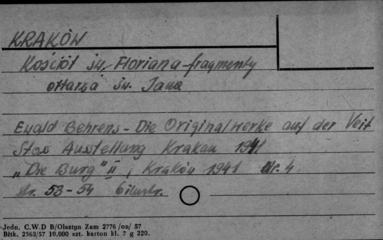 KRAKÓW
Kościół św. Floriana - fragmenty
ołtarza św. Jana
Ewald Behrens - Die Originalwerke auf der Veit
Stos Ausstellung Krakau 1941
"Die Burg" II, Kraków 1941 Nr. 4
str. 53-54 6 ilustr.
Jedn. C.W.D B/Olsztyn Zam 2776 /on/ 57
Błtk. 2563/57 10.000 szt. karton kl. 7 g 220.